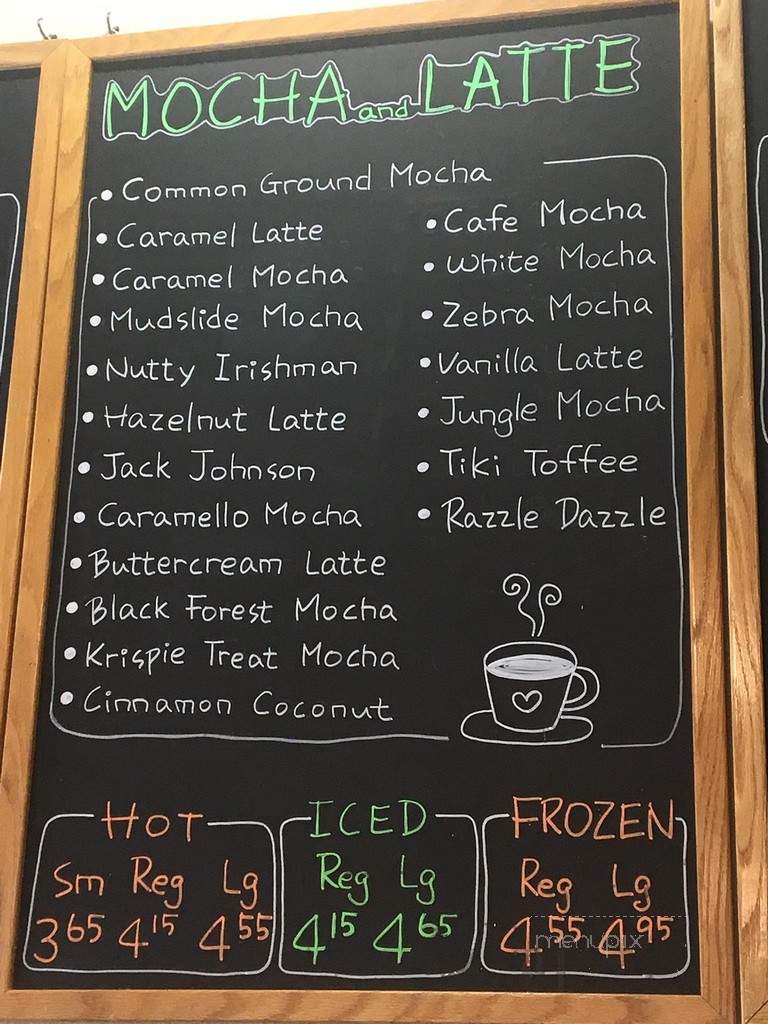 MOCHA and LATTE
• Common Ground Mocha
• Caramel Latte
• Caramel Mocha
• Mudslide Mocha
• Nutty Irishman
• Hazelnut Latte
• Jack Johnson
• Caramello Mocha
• Buttercream Latte
• Black Forest Mocha
• Krispie Treat Mocha
• Cinnamon Coconut
• Cafe Mocha
• White Mocha
• Zebra Mocha
• Vanilla Latte
• Jungle Mocha
• Tiki Toffee
• Razzle Dazzle
HOT
Sm Reg Lg
3 65 4 15 4 55
ICED
Reg Lg
4 15 4 65
FROZEN
Reg Lg
4 55 4 95
menupix